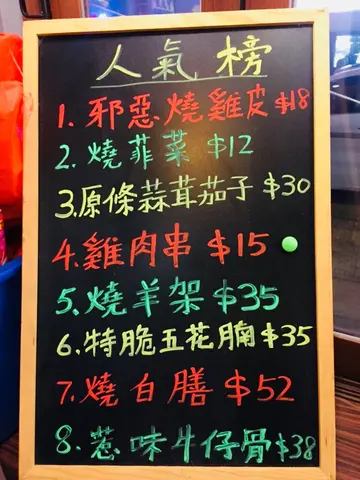 人氣榜
1. 邪惡燒雞皮 $18
2. 燒菲菜 $12
3. 原條蒜茸茄子 $30
4. 雞肉串 $15
5. 燒羊架 $35
6. 特脆五花腩 $35
7. 燒白膳 $52
8. 惹味牛仔骨 $38